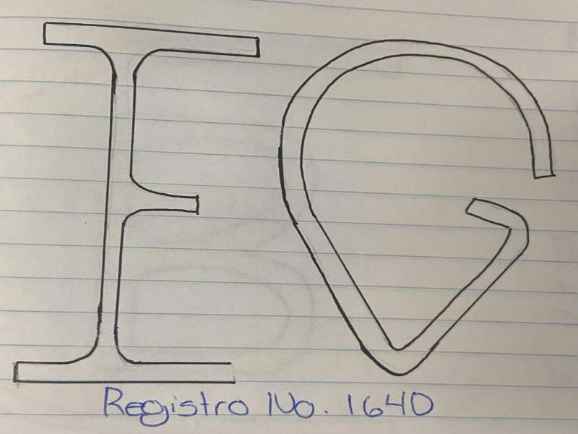 FG
Registro No. 1640